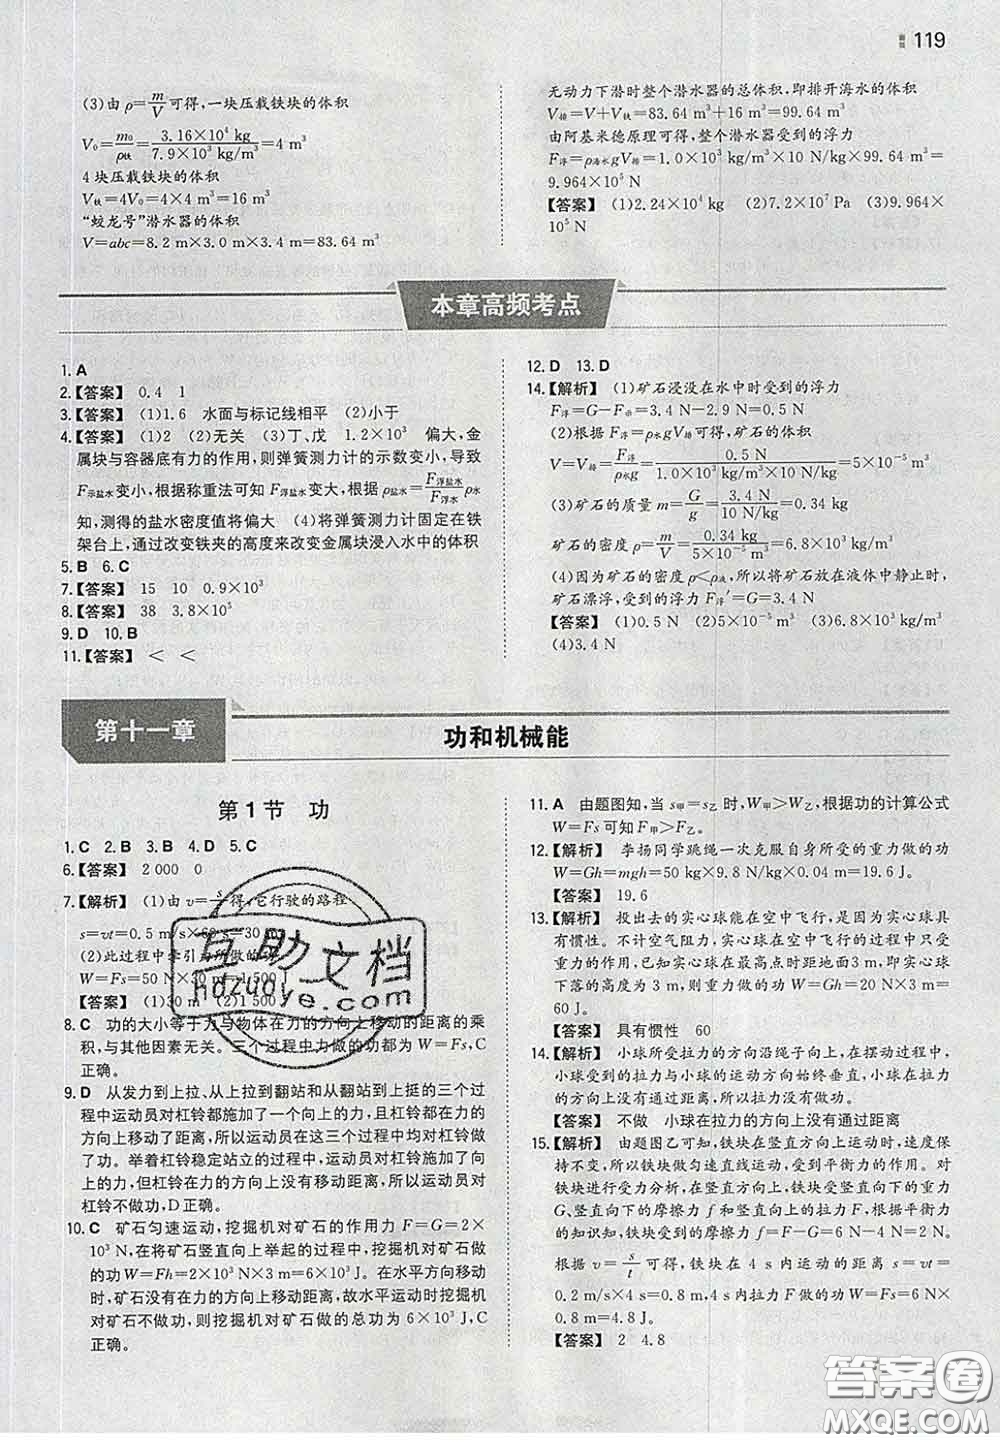 119
(3)由 ρ=m/V 可得,一块压载铁块的体积
V₀=m₀/ρ铁=3.16×10⁴ kg/7.9×10³ kg/m³=4 m³
4块压载铁块的体积
V铁=4V₀=4×4 m³=16 m³
“蛟龙号”潜水器的体积
V=abc=8.2 m×3.0 m×3.4 m=83.64 m³
无动力下潜时整个潜水器的总体积,即排开海水的体积
V排=V+V铁=83.64 m³+16 m³=99.64 m³
由阿基米德原理可得,整个潜水器受到的浮力
F浮=ρ海水gV排=1.0×10³ kg/m³×10 N/kg×99.64 m³=
9.964×10⁵ N
【答案】 (1)2.24×10⁴ kg (2)7.2×10⁷ Pa (3)9.964×
10⁵ N
本章高频考点
1. A
2.【答案】 0.4 1
3.【答案】 (1)1.6 水面与标记线相平 (2)小于
4.【答案】 (1)2 (2)无关 (3)丁、戊 1.2×10³ 偏大,金
属块与容器底有力的作用,则弹簧测力计的示数变小,导致
F示盐水变小,根据称重法可知 F浮盐水变大,根据 ρ盐水=F浮盐水/F浮水 ρ水
知,测得的盐水密度值将偏大 (4)将弹簧测力计固定在铁
架台上,通过改变铁夹的高度来改变金属块浸入水中的体积
5. B 6. C
7.【答案】 15 10 0.9×10³
8.【答案】 38 3.8×10⁵
9. D 10. B
11.【答案】 < <
12. D 13. D
14.【解析】 (1)矿石浸没在水中时受到的浮力
F浮=G-F示=3.4 N-2.9 N=0.5 N
(2)根据 F浮=ρ水gV排可得,矿石的体积
V=V排=F浮/ρ水g=0.5 N/1.0×10³ kg/m³×10 N/kg=5×10⁻⁵ m³
(3)矿石的质量 m=G/g=3.4 N/10 N/kg=0.34 kg
矿石的密度 ρ=m/V=0.34 kg/5×10⁻⁵ m³=6.8×10³ kg/m³
(4)因为矿石的密度 ρ<ρ液,所以将矿石放在液体中静止时,
矿石漂浮,受到的浮力 F浮′=G=3.4 N
【答案】 (1)0.5 N (2)5×10⁻⁵ m³ (3)6.8×10³ kg/m³
(4)3.4 N
第十一章
功和机械能
第1节 功
1. C 2. B 3. B 4. D 5. C
6.【答案】 2 000 0
7.【解析】 (1)由 v=s/t得,它行驶的路程
s=vt=0.5 m/s×60 s=30 m
(2)此过程中牵引力所做的功
W=Fs=50 N×30 m=1 500 J
【答案】 (1)30 m (2)1 500 J
8. C 功的大小等于力与物体在力的方向上移动的距离的乘
积,与其他因素无关。三个过程中力做的功都为 W=Fs,C
正确。
9. D 从发力到上拉、从上拉到翻站和从翻站到上挺的三个过
程中运动员对杠铃都施加了一个向上的力,且杠铃都在力的
方向上移动了距离,所以运动员在这三个过程中均对杠铃做
了功。举着杠铃稳定站立的过程中,运动员对杠铃施加了向上
的力,但杠铃在力的方向上没有移动距离,所以运动员对
杠铃不做功,D正确。
10. C 矿石匀速运动,挖掘机对矿石的作用力 F=G=2×
10³ N,在将矿石竖直向上举起的过程中,挖掘机对矿石做
的功 W=Fh=2×10³ N×3 m=6×10³ J。在水平方向移动
时,矿石没有在力的方向上移动,故水平运动时挖掘机
对矿石不做功,则挖掘机对矿石做的总功为 6×10³ J,C
正确。
11. A 由题图知,当 s甲=s乙 时,W甲>W乙,根据功的计算公式
W=Fs 可知 F甲>F乙。
12.【解析】 李扬同学跳绳一次克服自身所受的重力做的功
W=Gh=mgh=50 kg×9.8 N/kg×0.04 m=19.6 J。
【答案】 19.6
13.【解析】 投出去的实心球能在空中飞行,是因为实心球具
有惯性。不计空气阻力,实心球在空中飞行的过程中只受重力
作用,已知实心球在最高点时距地面3 m,即实心球
下落的高度为 3 m,则重力做的功 W=Gh=20 N×3 m=
60 J。
【答案】 具有惯性 60
14.【解析】 小球所受拉力的方向沿绳子向上,在摆动过程中,
小球受到的拉力与小球的运动方向始终垂直,小球在拉力
的方向上没有通过距离,所以拉力没有做功。
【答案】 不做 小球在拉力的方向上没有通过距离
15.【解析】 由题图乙可知,铁块在竖直方向上运动时,速度保
持不变,所以铁块做匀速直线运动,受到平衡力的作用。对铁块
进行受力分析,在竖直方向上,铁块受到竖直向下的重力
G、竖直向下的摩擦力 f 和竖直向上的拉力 F,根据平衡力
的知识知,铁块受到的摩擦力 f=F-G=6 N-4 N=2 N。
根据 v=s/t 可得,铁块在 4 s 内运动的距离 s=vt=
0.2 m/s×4 s=0.8 m,4 s内拉力 F 做的功 W=Fs=6 N×
0.8 m=4.8 J。
【答案】 2 4.8
互助文档
hdzuoye.com
答案圈
MXQE.COM